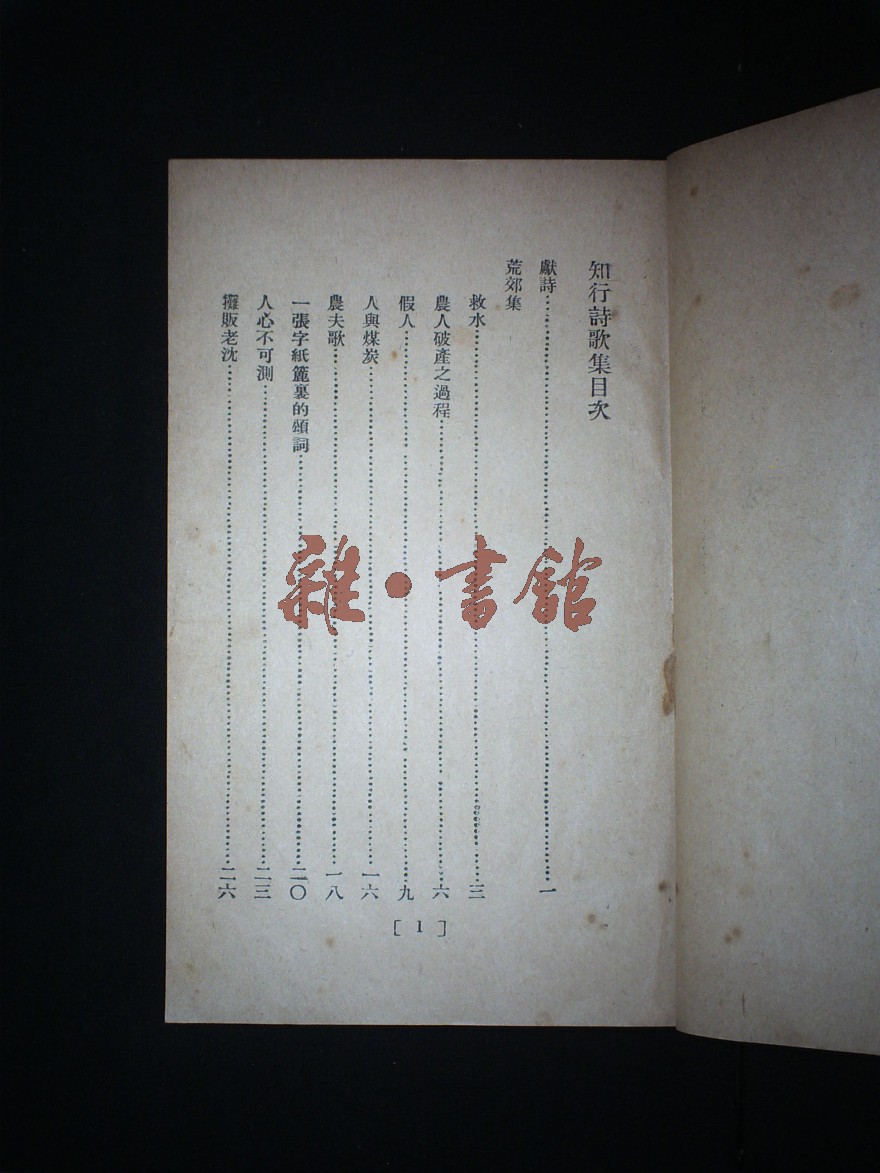 知行詩歌集目次
獻詩……一
荒郊集
救水……三
農人破產之過程……六
假人……九
人與煤炭……一六
農夫歌……一八
一張字紙簏裏的頌詞……二〇
人心不可測……二三
攤販老沈……二六
[ 1 ]
雜·書館